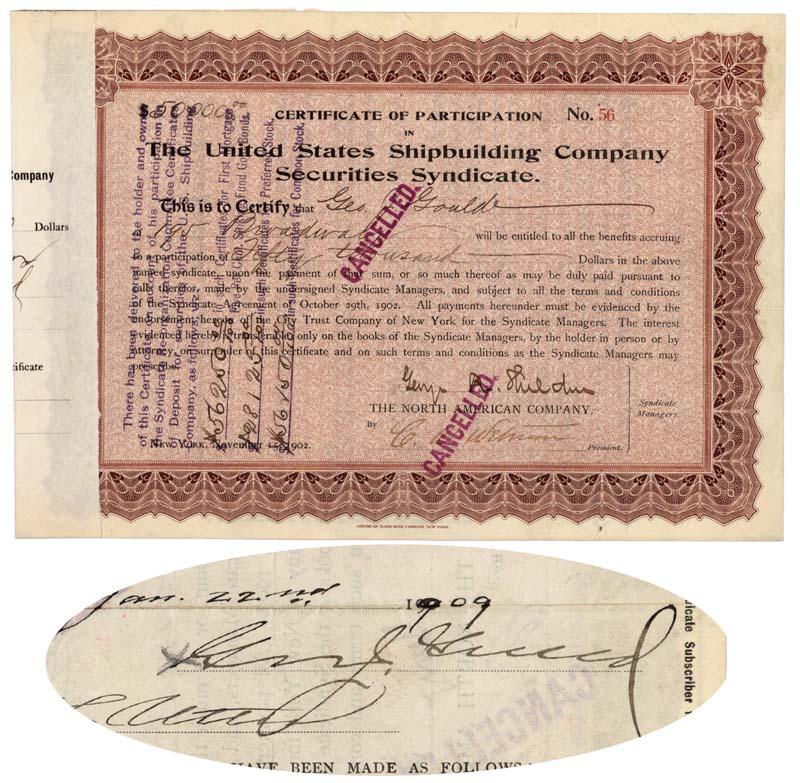 ompany
Dollars
ificate
$50,000.00
CERTIFICATE OF PARTICIPATION No. 56
IN
The United States Shipbuilding Company
Securities Syndicate.
This is to Certify that Geo. J. Gould
195 Broadway will be entitled to all the benefits accruing
to a participation of Fifty thousand Dollars in the above
named Syndicate, upon the payment of that sum, or so much thereof as may be duly paid pursuant to
calls therefor, made by the undersigned Syndicate Managers, and subject to all the terms and conditions
of the Syndicate Agreement of October 29th, 1902. All payments hereunder must be evidenced by the
endorsement hereon of the City Trust Company of New York for the Syndicate Managers. The interest
evidenced hereby is transferable only on the books of the Syndicate Managers, by the holder in person or by
attorney, on surrender of this certificate and on such terms and conditions as the Syndicate Managers may
prescribe.
THE NORTH AMERICAN COMPANY,
By
President.
Syndicate
Managers.
NEW YORK, November 1902.
There has been delivered to the holder and owner
of this Certificate, on account of his participation in
the Syndicate, Reorganization Committee Certificates
of Deposit for securities of the U. S. Shipbuilding
Company, as follows, viz:
in such Certificates for First Mortgage
Sinking Fund Gold Bonds.
in such Certificates for Preferred Stock.
in such Certificates for Common Stock.
CANCELLED.
CANCELLED.
AMERICAN BANK NOTE COMPANY, NEW YORK.
Jan. 22nd 1909
Geo. J. Gould
CANCELL
HAVE BEEN MADE AS FOLLOWS
dicate Subscriber